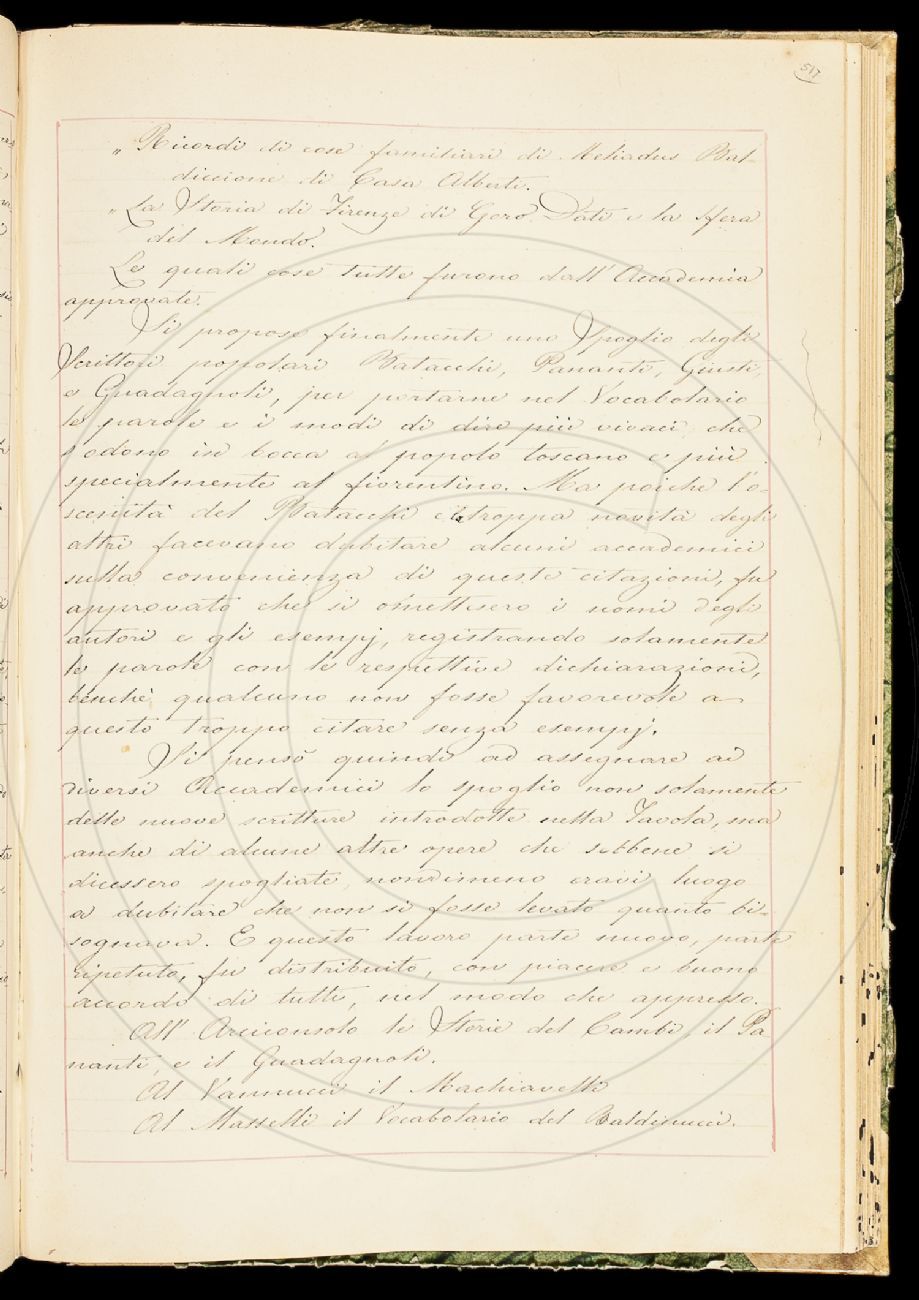 517
„ Ricordi di cose familiari di Meliadus Bal-
diccione di Casa Alberti.
„ La Storia di Firenze di Goro Dati e la Sfera
del Mondo.
Le quali cose tutte furono dall' Accademia
approvate.
Si propose finalmente uno Spoglio degli
Scrittori popolari Batacchi, Pananti, Giusti,
e Guadagnoli, per portarne nel Vocabolario
le parole e i modi di dire più vivaci che
s'odono in bocca al popolo toscano e più
specialmente al fiorentino. Ma poichè l'o-
scenità del Batacchi e la troppa novità degli
altri facevano dubitare alcuni accademici
sulla convenienza di queste citazioni, fu
approvato che si omettessero i nomi degli
autori e gli esempj, registrando solamente
le parole con le respettive dichiarazioni,
benchè qualcuno non fosse favorevole a
questo troppo citare senza esempj.
Si pensò quindi ad assegnare ai
diversi Accademici lo spoglio non solamente
delle nuove scritture introdotte nella Tavola, ma
anche di alcune altre opere che sebbene si
dicessero spogliate, nondimeno eravi luogo
a dubitare che non si fosse levato quanto bi-
sognava. E questo lavoro parte nuovo, parte
ripetuto, fu distribuito, con piacere e buono
accordo di tutti, nel modo che appresso.
All' Arciconsolo le Storie del Cambi, il Pa
nanti, e il Guadagnoli.
Al Vannucci il Machiavelli
Al Masselli il Vocabolario del Baldinucci.